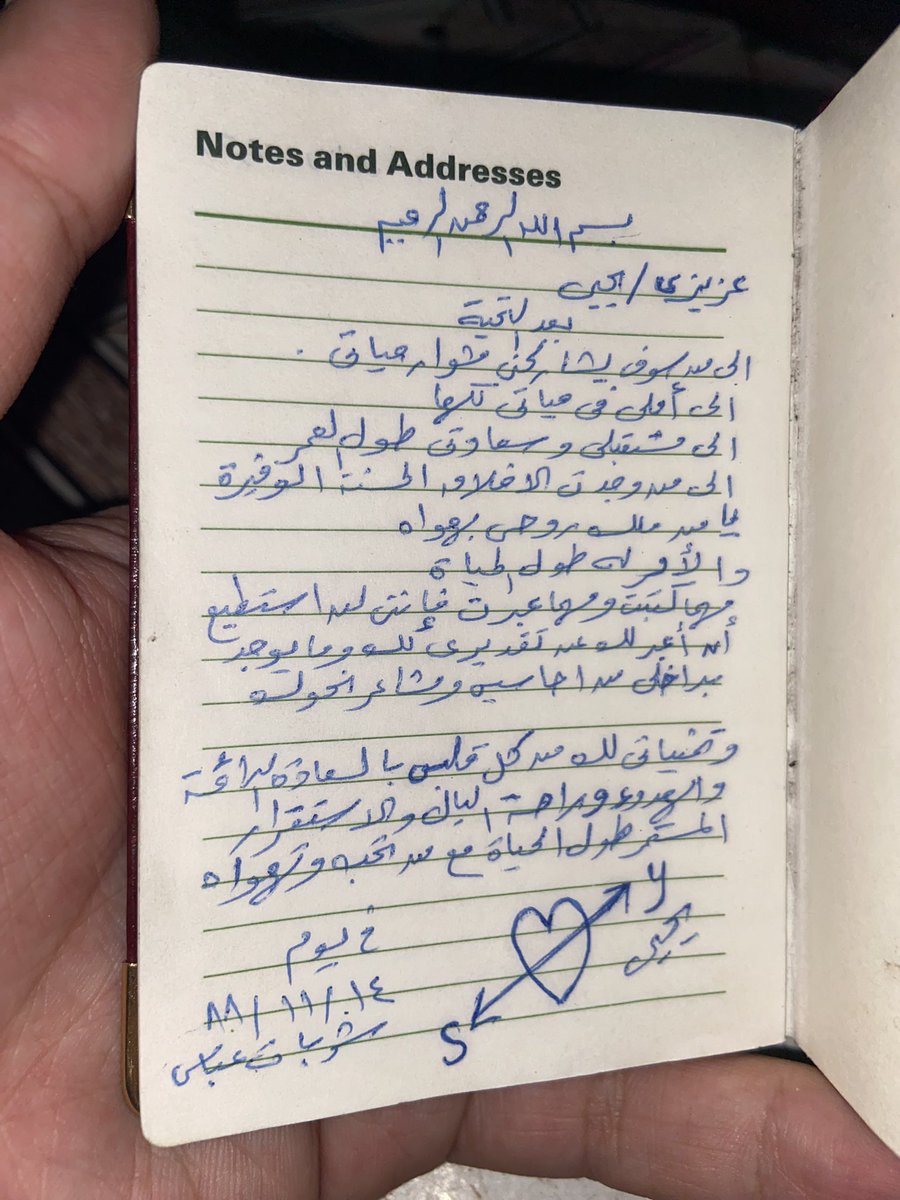 Notes and Addresses
بسم الله الرحمن الرحيم
عزيزي / يحيى
بعد التحية
الى من سوف يشاركني مشوار حياتي .
الى أملي في حياتي كلها
الى مستقبلي وسعادتي طول العمر
الى من وجدت الاخلاق الحسنة الوفيرة
يا من ملك روحي بهواه
والأمر له طول الحياة
مهما كتبت ومهما عبرت فإنني لن استطيع
أن أعبر لك عن تقديري لك وما يوجد
بداخلي من احاسيس ومشاعر نحوك
وتمنياتي لك من كل قلبي بالسعادة الدائمة
والهدوء وراحة البال والاستقرار
المستمر طول الحياة مع من تحبه وتهواه
Y
يحيى
في يوم
١٤ / ١١ / ٨٨
S
عباس